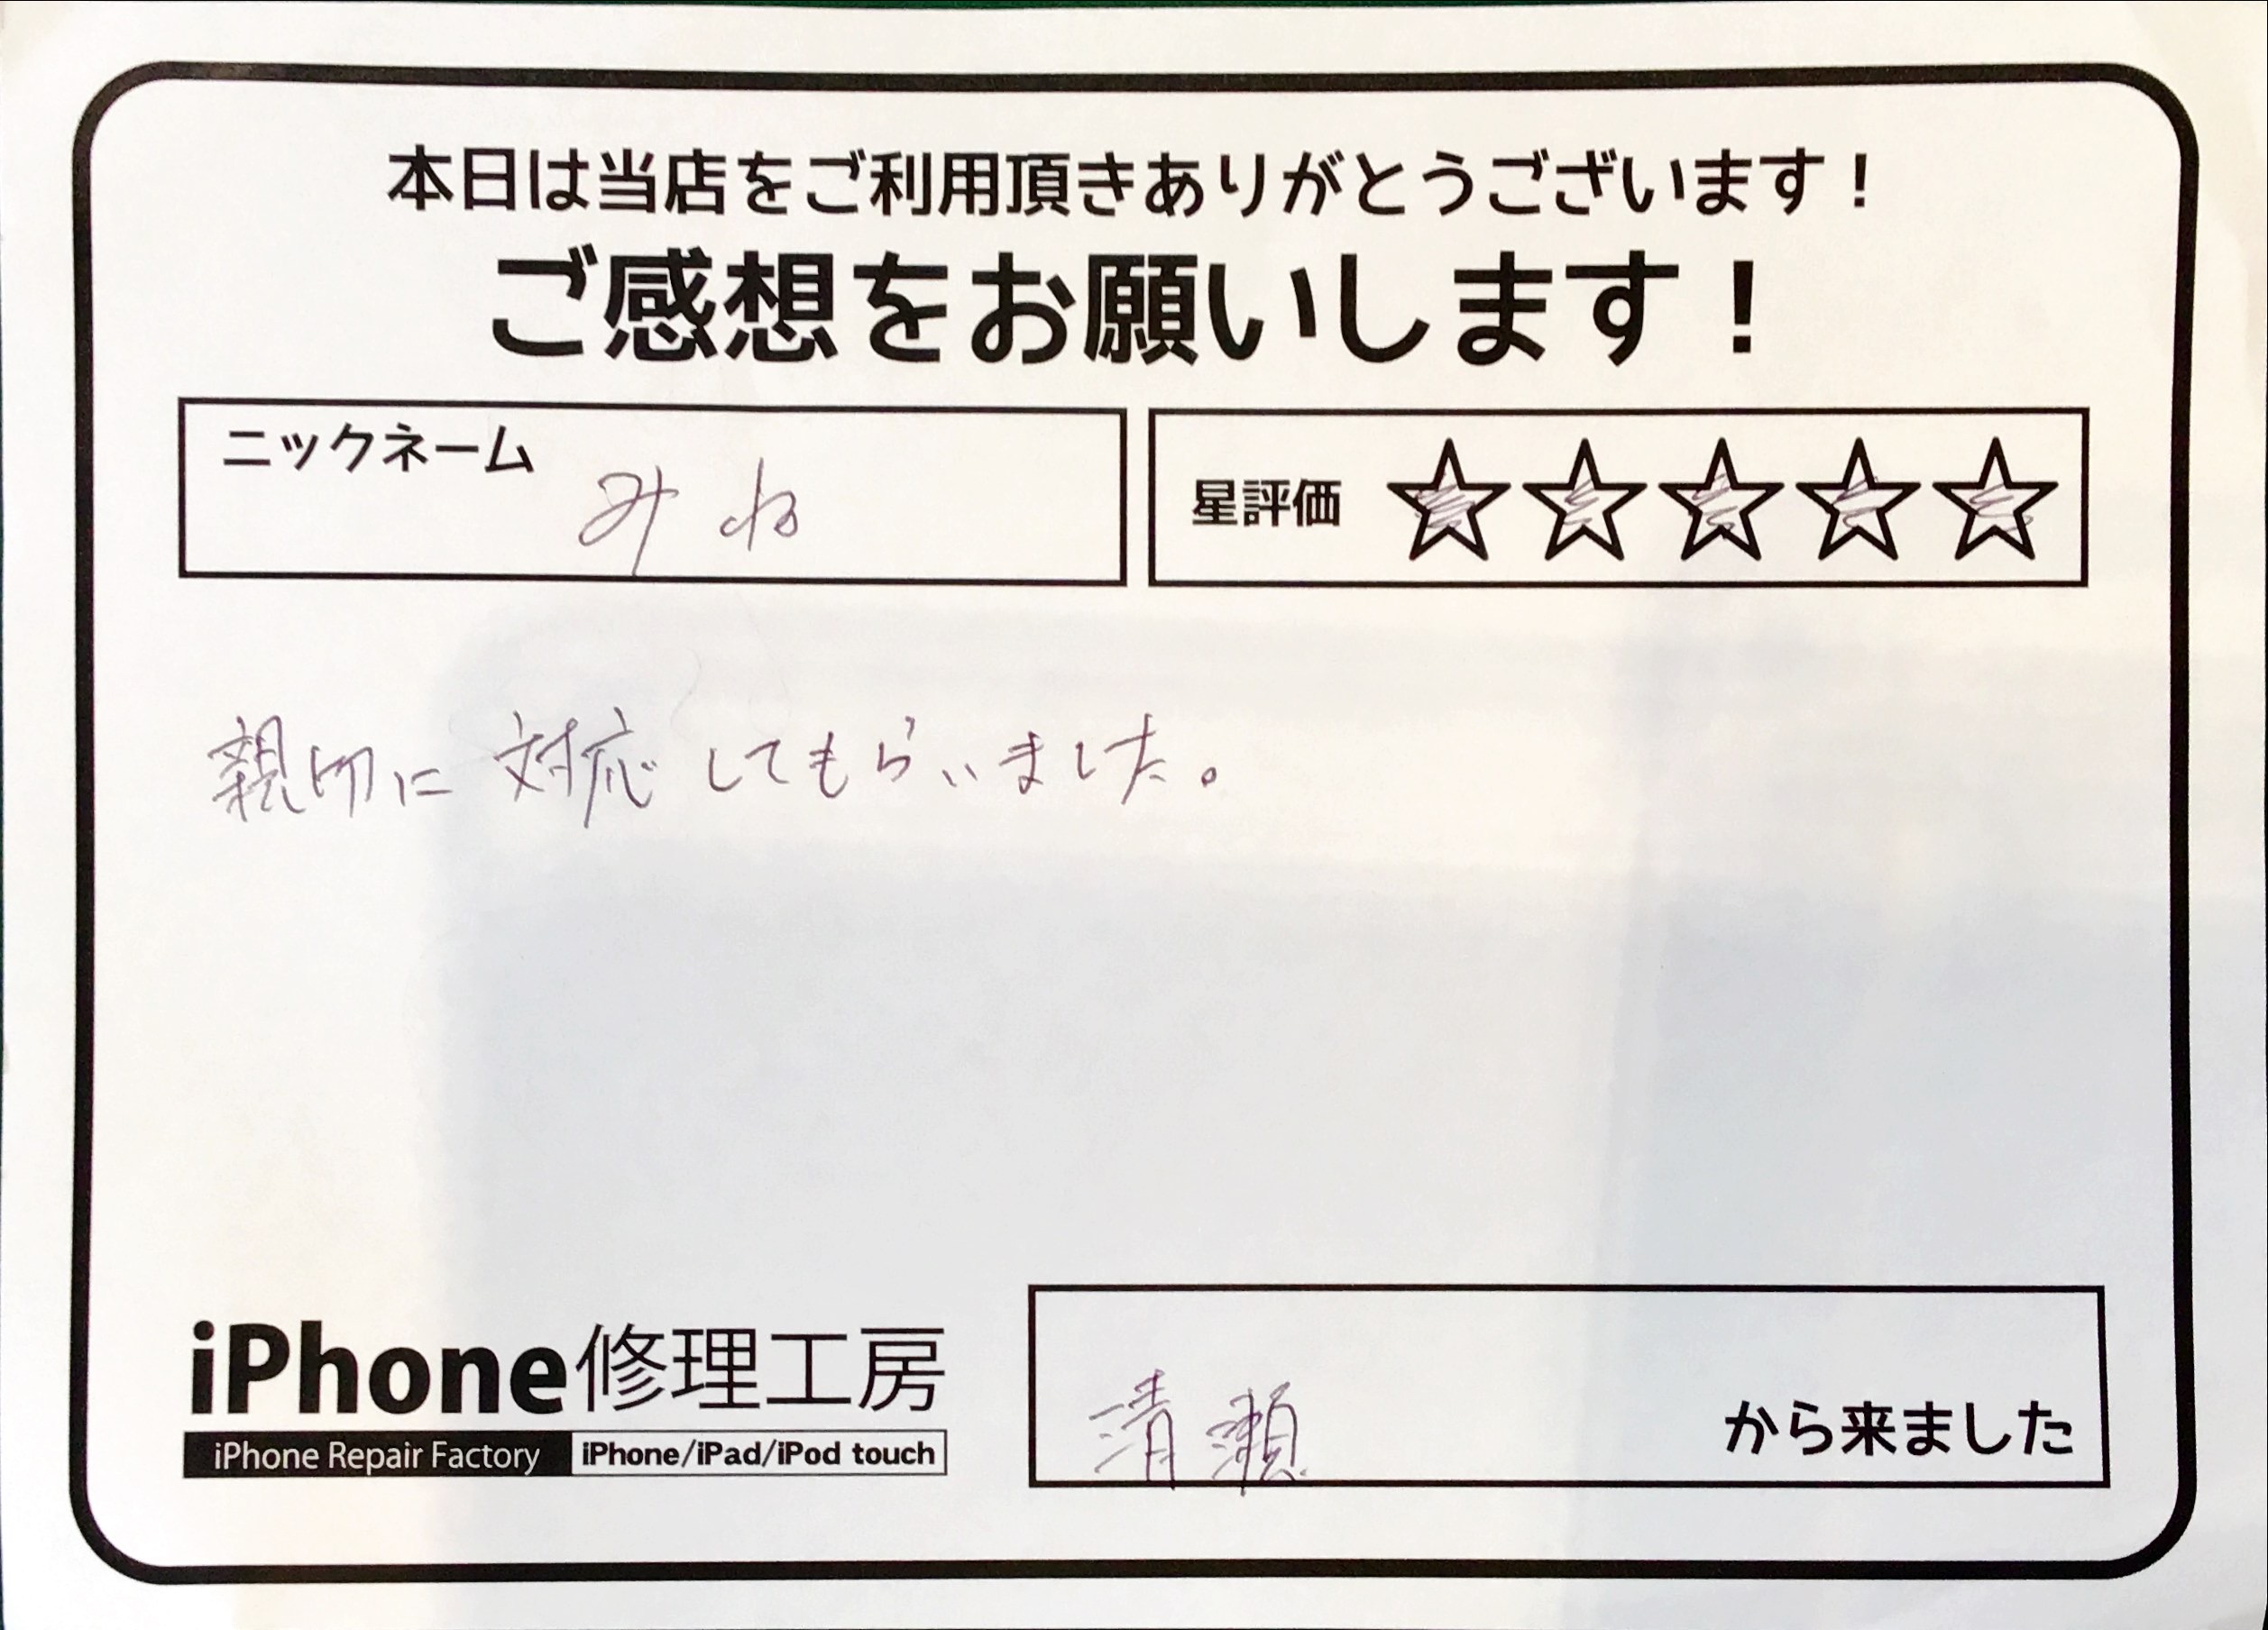 本日は当店をご利用頂きありがとうございます！
ご感想をお願いします！
ニックネーム みね
星評価 ☆☆☆☆☆
親切に対応してもらいました。
iPhone修理工房
iPhone Repair Factory iPhone/iPad/iPod touch
清瀬 から来ました